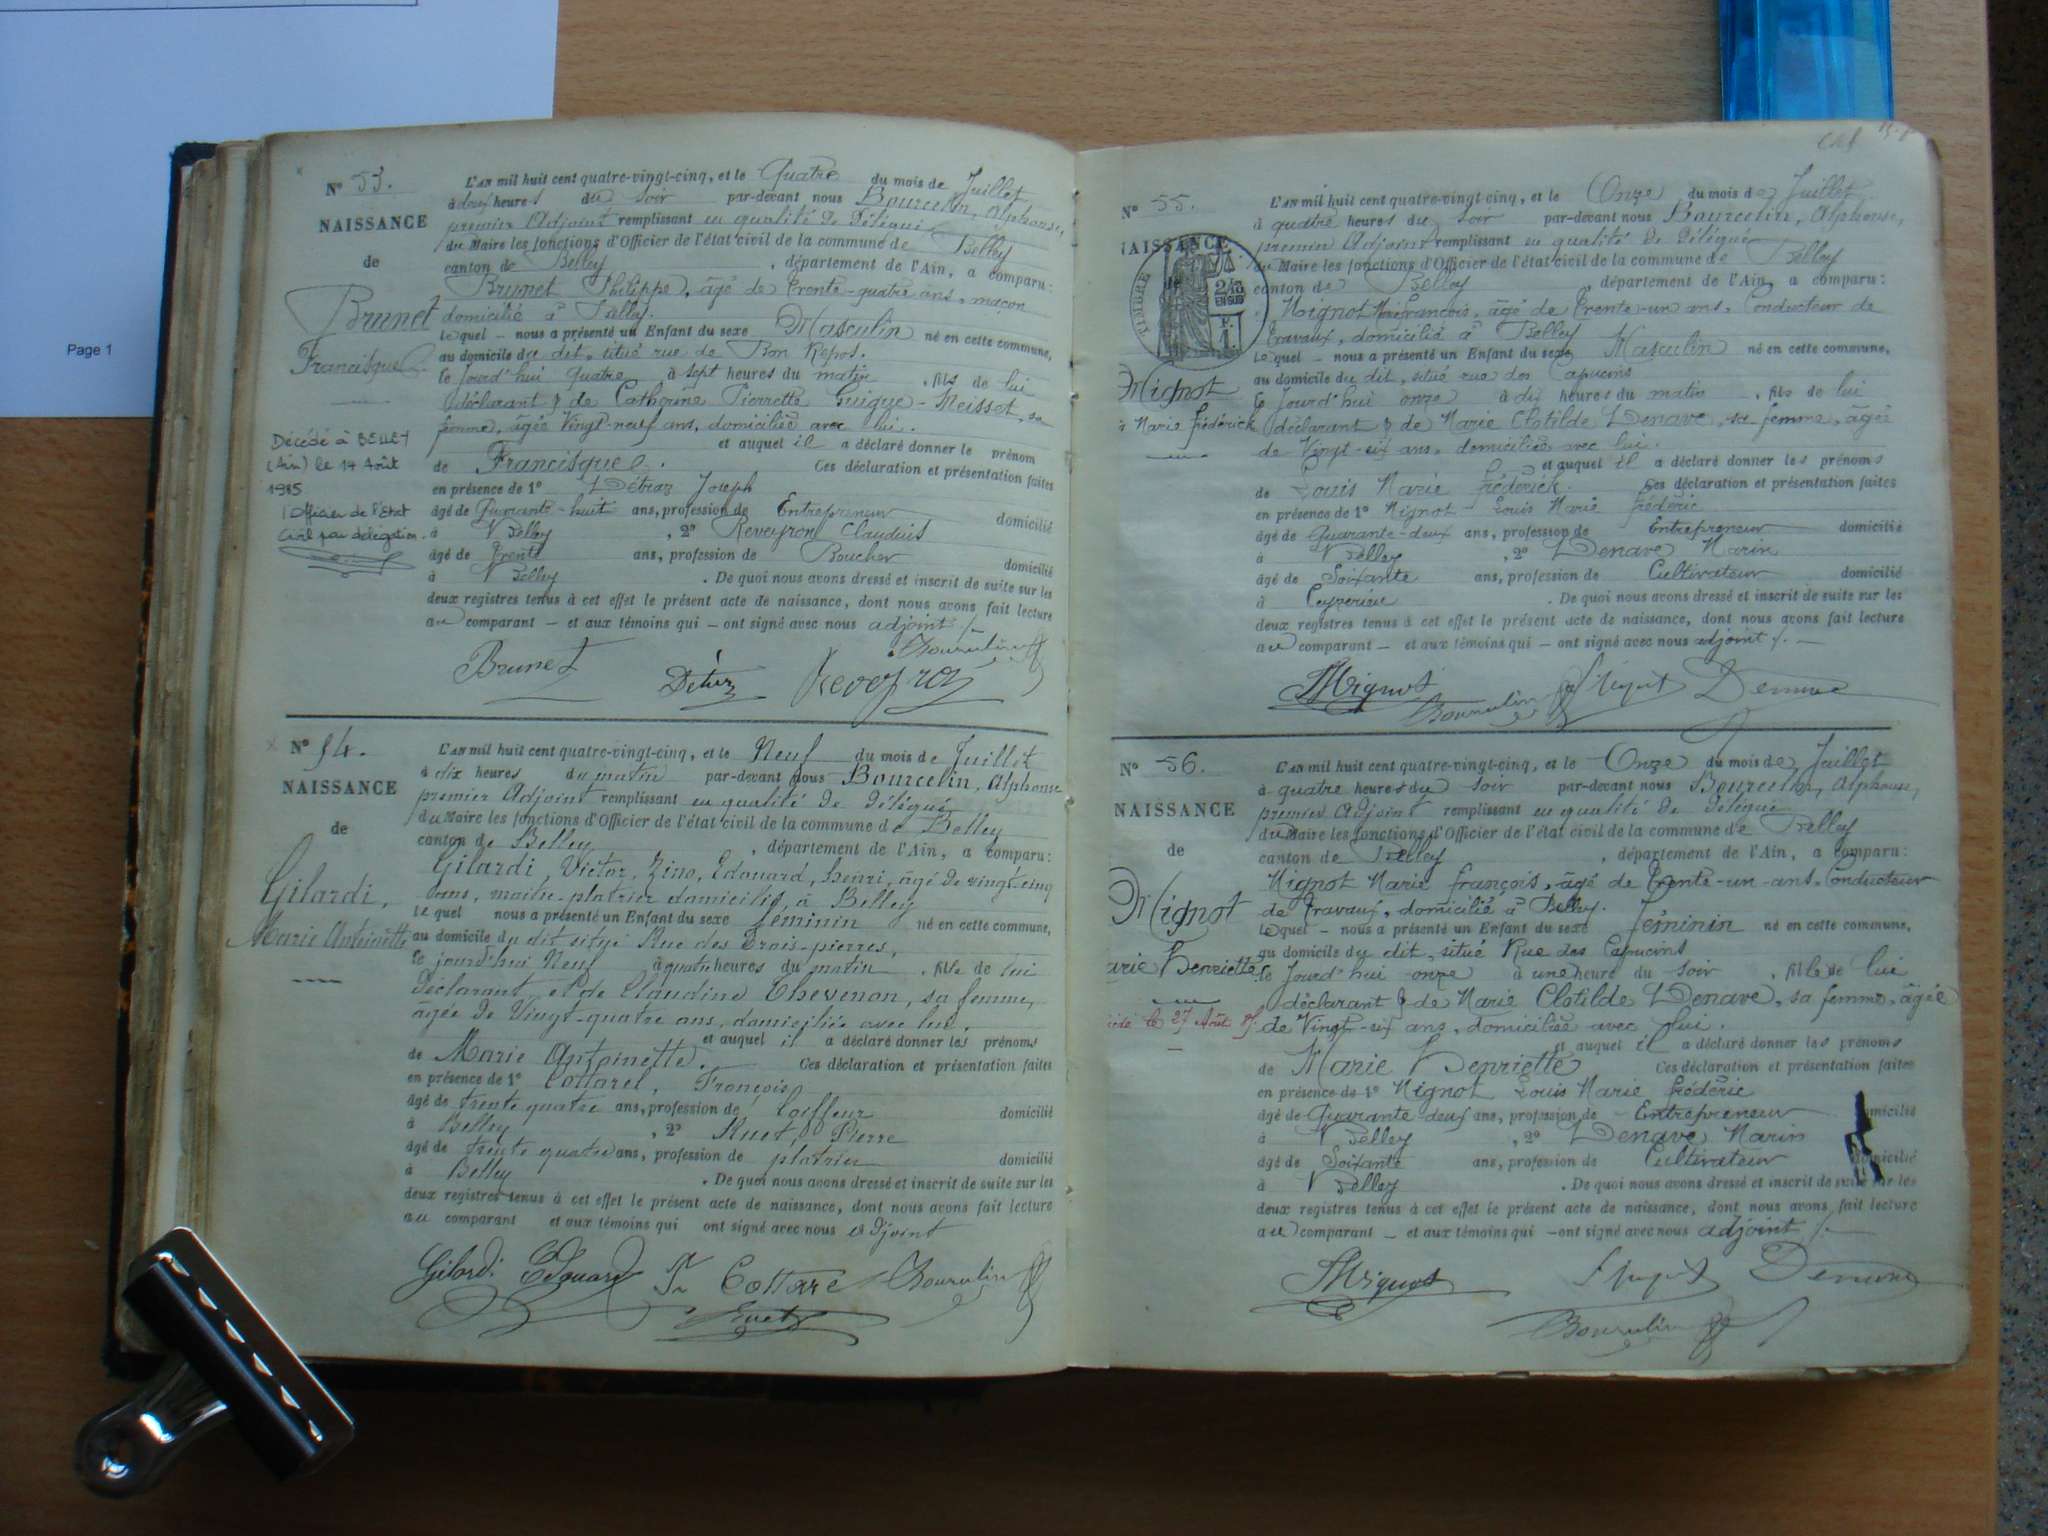 Page 1
N° 53.
NAISSANCE
de
Brunet
Francisque
Décédé à BELLEY
(Ain) le 17 Août
l'Officier de l'Etat
Civil par délégation.
L'AN mil huit cent quatre-vingt-cinq, et le Quatre du mois de Juillet
à deux heures du soir par-devant nous Bourcelin, Alphonse,
premier Adjoint remplissant en qualité de délégué
du Maire les fonctions d'Officier de l'état civil de la commune de Belley
canton de Belley, département de l'Ain, a comparu:
Brunet Philippe, âgé de trente-quatre ans, maçon
domicilié à Belley.
lequel - nous a présenté un Enfant du sexe Masculin né en cette commune,
au domicile du dit, situé rue de Bon Repos.
le jourd'hui quatre à sept heures du matin, fils de lui
déclarant & de Catherine Pierrette Guigue-Neisset, sa
femme, âgée Vingt-neuf ans, domiciliée avec lui.
et auquel il a déclaré donner le prénom
de Francisque. Ces déclaration et présentation faites
en présence de 1° Détraz Joseph
âgé de Quarante-huit ans, profession de Entrepreneur domicilié
à Belley, 2° Reveyron Claudius
âgé de trente ans, profession de Boucher domicilié
à Belley. De quoi nous avons dressé et inscrit de suite sur les
deux registres tenus à cet effet le présent acte de naissance, dont nous avons fait lecture
au comparant - et aux témoins qui - ont signé avec nous adjoint ./.
Bourcelin
Brunet Détraz Reveyron
N° 54.
NAISSANCE
de
Gilardi,
Marie Antoinette
L'AN mil huit cent quatre-vingt-cinq, et le Neuf du mois de Juillet
à dix heures du matin par-devant nous Bourcelin, Alphonse
premier Adjoint remplissant en qualité de délégué
du Maire les fonctions d'Officier de l'état civil de la commune de Belley
canton de Belley, département de l'Ain, a comparu:
Gilardi, Victor, Zino, Edouard, henri, âgé de vingt-cinq
ans, maître-platrier domicilié à Belley
lequel nous a présenté un Enfant du sexe féminin né en cette commune,
au domicile du dit situé Rue des Trois-pierres,
le jourd'hui Neuf à quatre heures du matin, fille de lui
déclarant et de Claudine Thevenon, sa femme,
âgée de Vingt-quatre ans, domiciliée avec lui.
et auquel il a déclaré donner les prénoms
de Marie Antoinette. Ces déclaration et présentation faites
en présence de 1° Cottarel, François
âgé de trente quatre ans, profession de Coiffeur domicilié
à Belley, 2° Ruet, Pierre
âgé de trente quatre ans, profession de platrier domicilié
à Belley. De quoi nous avons dressé et inscrit de suite sur les
deux registres tenus à cet effet le présent acte de naissance, dont nous avons fait lecture
au comparant et aux témoins qui ont signé avec nous adjoint
Gilardi Edouard Bourcelin
Ruet
N° 55.
NAISSANCE
de
TIMBRE
EN SUS
Mignot
Marie Frédérick
L'AN mil huit cent quatre-vingt-cinq, et le Onze du mois de Juillet
à quatre heures du soir par-devant nous Bourcelin, Alphonse,
premier Adjoint remplissant en qualité de délégué
du Maire les fonctions d'Officier de l'état civil de la commune de Belley
canton de Belley, département de l'Ain, a comparu:
Mignot Marie françois, âgé de trente-un ans, Conducteur de
travaux, domicilié à Belley
lequel - nous a présenté un Enfant du sexe Masculin né en cette commune,
au domicile du dit, situé rue des Capucins
le jourd'hui onze à dix heures du matin, fils de lui
déclarant & de Marie Clotilde Denave, sa femme, âgée
de Vingt-six ans, domiciliée avec lui.
et auquel il a déclaré donner les prénoms
de Louis Marie fréderick. Ces déclaration et présentation faites
en présence de 1° Mignot Louis Marie fréderic
âgé de Quarante-deux ans, profession de Entrepreneur domicilié
à Belley, 2° Denave Marin
âgé de Soixante ans, profession de Cultivateur domicilié
à Ceyzerieu. De quoi nous avons dressé et inscrit de suite sur les
deux registres tenus à cet effet le présent acte de naissance, dont nous avons fait lecture
au comparant - et aux témoins qui - ont signé avec nous adjoint ./.
Mignot Bourcelin Mignot Denave
N° 56.
NAISSANCE
de
Mignot
Marie henriette
le 27 Août
L'AN mil huit cent quatre-vingt-cinq, et le Onze du mois de Juillet
à quatre heures du soir par-devant nous Bourcelin, Alphonse,
premier Adjoint remplissant en qualité de délégué
du Maire les fonctions d'Officier de l'état civil de la commune de Belley
canton de Belley, département de l'Ain, a comparu:
Mignot Marie françois, âgé de trente-un-ans, Conducteur
de travaux, domicilié à Belley.
lequel - nous a présenté un Enfant du sexe féminin né en cette commune,
au domicile du dit, situé Rue des Capucins
le jourd'hui onze à une heure du soir, fille de lui
déclarant & de Marie Clotilde Denave, sa femme, âgée
de Vingt-six ans, domiciliée avec lui.
et auquel il a déclaré donner les prénoms
de Marie henriette Ces déclaration et présentation faites
en présence de 1° Mignot Louis Marie fréderic
âgé de Quarante-deux ans, profession de Entrepreneur domicilié
à Belley, 2° Denave Marin
âgé de Soixante ans, profession de Cultivateur domicilié
à Belley. De quoi nous avons dressé et inscrit de suite sur les
deux registres tenus à cet effet le présent acte de naissance, dont nous avons fait lecture
au comparant - et aux témoins qui - ont signé avec nous adjoint ./.
Mignot Mignot Denave
Bourcelin